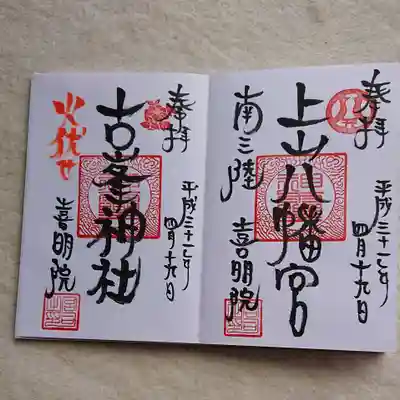 奉拝
上山八幡宮
平成三十一年
四月十九日
南三陸
喜明院
奉拝
古峯神社
平成三十一年
四月十九日
火伏せ
喜明院